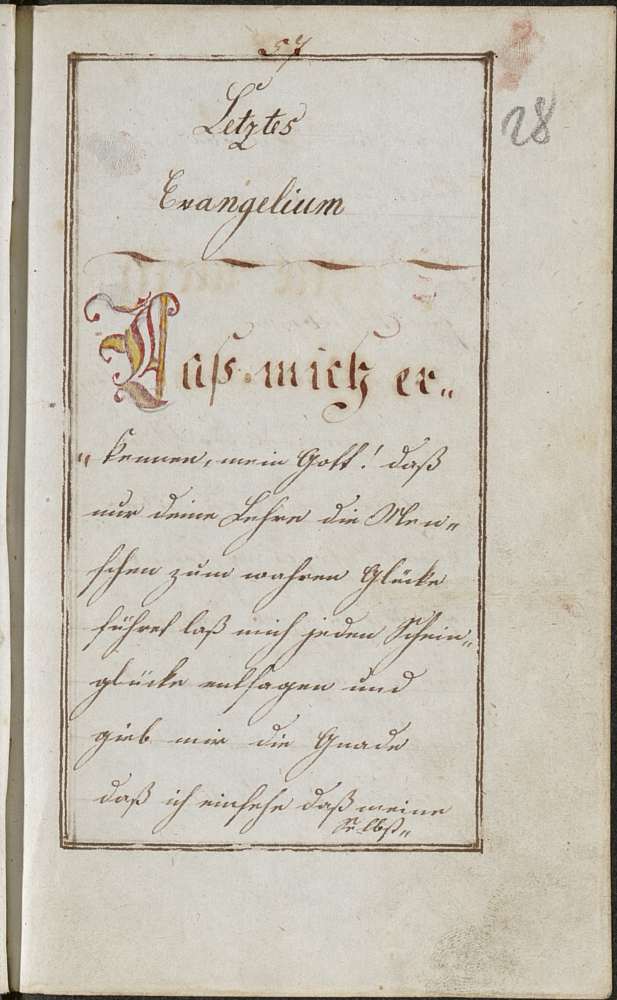 57
28
Letztes
Evangelium
Laß mich er„
„kennen, mein Gott! daß
nur deine Lehre die Men„
schen zum wahren Glücke
führet laß mich jeden Schein„
glücke entsagen und
gieb mir die Gnade
daß ich einsehe daß meine
Selbst„